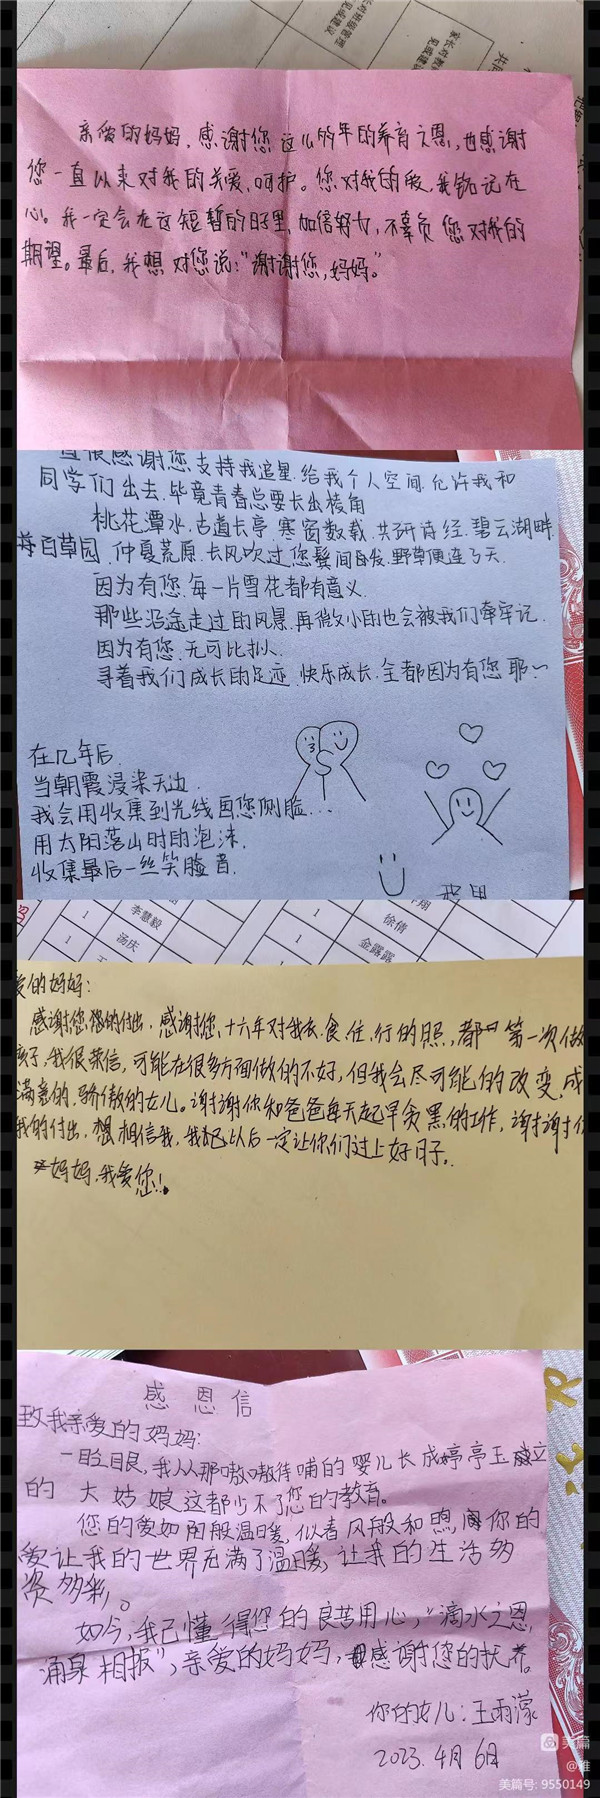 家长对班级管理
见或建议
家长对教
见或建议
共
亲爱的妈妈,感谢您这么多年的养育之恩,也感谢
您一直以来对我的关爱、呵护。您对我的爱,我铭记在
心。我一定会在这短暂的日子里,加倍努力,不辜负您对我的
期望。最后,我想对您说:“谢谢您,妈妈。”
直很感谢您支持我追星.给我个人空间.允许我和
同学们出去.毕竟青春总要长出棱角
桃花潭水.古道长亭.寒窗数载.共研诗经.碧云湖畔.
寻百草园.仲夏荒原.长风吹过您鬓间白发.野草便连了天.
因为有您.每一片雪花都有意义.
那些沿途走过的风景.再微小的也会被我们牵牢记.
因为有您.无可比拟.
寻着我们成长的足迹.快乐成长.全都因为有您耶~
在几年后.
当朝霞浸染天边.
我会用收集到光线画您侧脸...
用太阳落山时的泡沫.
收集最后一丝笑脸音.
1
李慧毅
1
汤庆
1
翔
1
徐倩
1
金露露
爱的妈妈:
感谢您您的付出,感谢您,十六年对我衣.食.住,行的照,都第一次做
孩子,我很荣信,可能在很多方面做的不好,但我会尽可能的改变,成
满意的.骄傲的女儿。谢谢你和爸爸每天起早贪黑的工作,谢谢
我的付出,想相信我,我以后一定让你们过上好日子。
妈妈,我爱您!
感恩信
致我亲爱的妈妈:
一眨眼,我从那嗷嗷待哺的婴儿长成婷亭玉立
的大姑娘这都少不了您的教育。
您的爱如阳般温暖,似春风般和煦你的
爱让我的世界充满了温暖,让我的生活多
资多彩。
如今,我已懂得您的良苦用心,“滴水之恩,
涌泉相报”,亲爱的妈妈,感谢您的抚养。
你的女儿:王雨濛
2023.4月6日
美篇
@雅
美篇号: 9550149